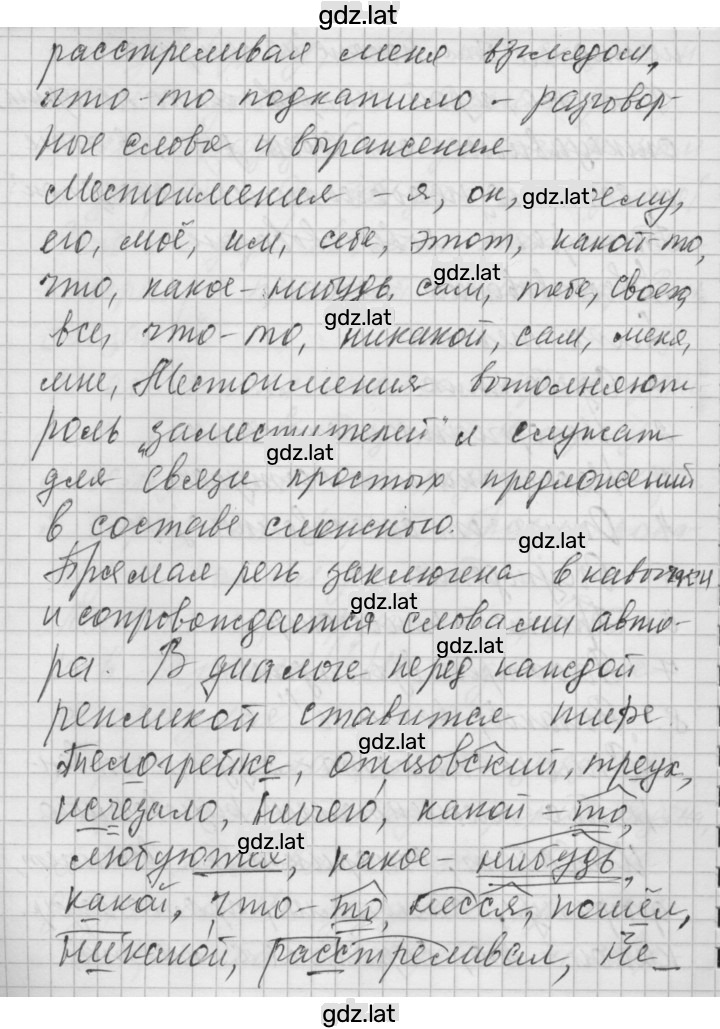 gdz.lat
расстреливая меня взглядом,
что-то подкатило - разговор-
ные слова и выражения
Местоимения - я, он, чему,
gdz.lat
его, моё, им, себе, этот, какой-то,
gdz.lat
что, какое-нибудь, сам, тебе, своего,
gdz.lat
все, что-то, никакой, сам, меня,
мне, Местоимения выполняют
роль "заместителей" и служат
gdz.lat
для связи простых предложений
в составе сложного.
gdz.lat
Прямая речь заключена в кавычки
gdz.lat
и сопровождается словами авто-
ра. В диалоге перед каждой
репликой ставится тире
gdz.lat
Телогрейке, отцовский, треух,
исчезало, ничего, какой-то,
gdz.lat
любуются, какое-нибудь,
какой, что-то, несся, пошёл,
gdz.lat
никакой, расстреливал, не
gdz.lat